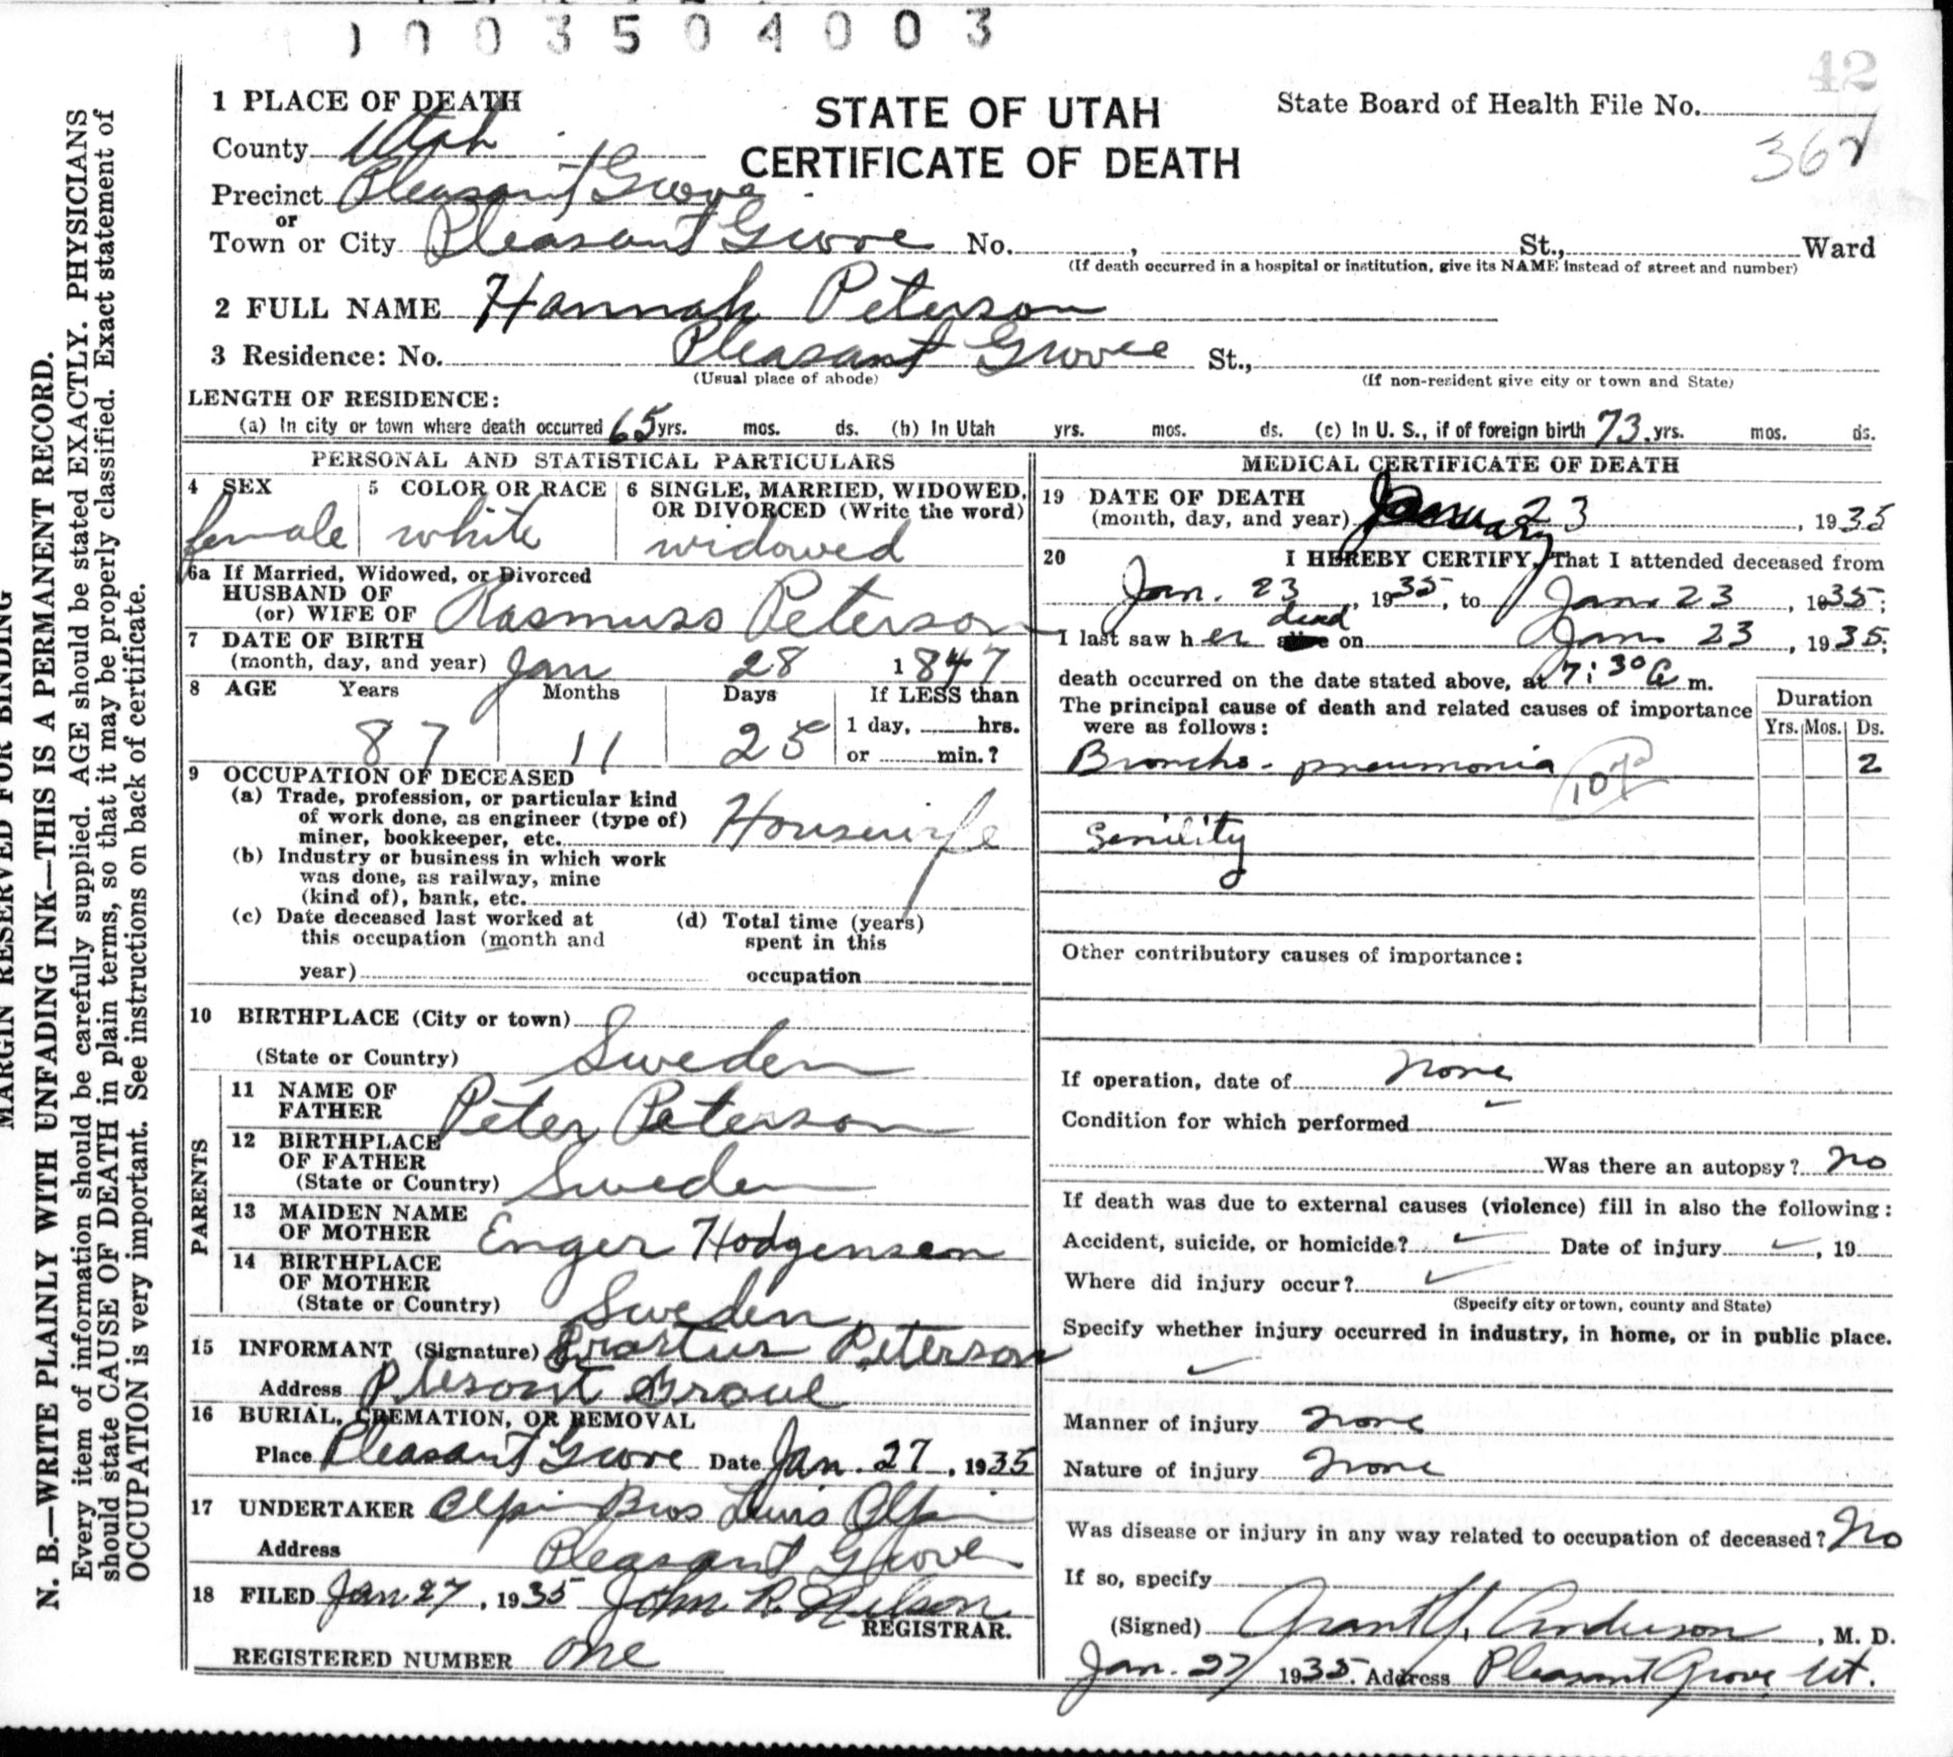 1003504003
42
362
MARGIN RESERVED FOR BINDING
N. B.—WRITE PLAINLY WITH UNFADING INK—THIS IS A PERMANENT RECORD.
Every item of information should be carefully supplied. AGE should be stated EXACTLY. PHYSICIANS
should state CAUSE OF DEATH in plain terms, so that it may be properly classified. Exact statement of
OCCUPATION is very important. See instructions on back of certificate.
STATE OF UTAH
CERTIFICATE OF DEATH
State Board of Health File No.
1 PLACE OF DEATH
County Utah
Precinct Pleasant Grove
or
Town or City Pleasant Grove No. , St., Ward
(If death occurred in a hospital or institution, give its NAME instead of street and number)
2 FULL NAME Hannah Peterson
3 Residence: No. Pleasant Grove St.,
(Usual place of abode) (If non-resident give city or town and State)
LENGTH OF RESIDENCE:
(a) In city or town where death occurred 65 yrs. mos. ds. (b) In Utah yrs. mos. ds. (c) In U. S., if of foreign birth 73 yrs. mos. ds.
PERSONAL AND STATISTICAL PARTICULARS
4 SEX female
5 COLOR OR RACE white
6 SINGLE, MARRIED, WIDOWED,
OR DIVORCED (Write the word)
widowed
6a If Married, Widowed, or Divorced
HUSBAND OF
(or) WIFE OF Rasmuss Peterson
7 DATE OF BIRTH
(month, day, and year) Jan 28 1847
8 AGE Years Months Days If LESS than
87 11 25 1 day, hrs.
or min.?
9 OCCUPATION OF DECEASED
(a) Trade, profession, or particular kind
of work done, as engineer (type of)
miner, bookkeeper, etc. Housewife
(b) Industry or business in which work
was done, as railway, mine
(kind of), bank, etc.
(c) Date deceased last worked at
this occupation (month and
year)
(d) Total time (years)
spent in this
occupation
10 BIRTHPLACE (City or town)
(State or Country) Sweden
PARENTS
11 NAME OF
FATHER Peter Peterson
12 BIRTHPLACE
OF FATHER
(State or Country) Sweden
13 MAIDEN NAME
OF MOTHER Enger Hodgensen
14 BIRTHPLACE
OF MOTHER
(State or Country) Sweden
15 INFORMANT (Signature) Erastus Peterson
Address Plesont Grove
16 BURIAL, CREMATION, OR REMOVAL
Place Pleasant Grove Date Jan. 27, 1935
17 UNDERTAKER Olpin Bros Lewis Olpin
Address Pleasant Grove
18 FILED Jan 27, 1935 John R. Nelson
REGISTRAR.
REGISTERED NUMBER One
MEDICAL CERTIFICATE OF DEATH
19 DATE OF DEATH
(month, day, and year) January 23, 1935
20 I HEREBY CERTIFY, That I attended deceased from
Jan. 23, 1935, to Jan. 23, 1935;
dead
I last saw her on Jan. 23, 1935;
death occurred on the date stated above, at 7:30 A m.
The principal cause of death and related causes of importance
were as follows:
Duration
Yrs. Mos. Ds.
Broncho-pneumonia 107a 2
Senility
Other contributory causes of importance:
If operation, date of none
Condition for which performed
Was there an autopsy? no
If death was due to external causes (violence) fill in also the following:
Accident, suicide, or homicide? Date of injury , 19
Where did injury occur?
(Specify city or town, county and State)
Specify whether injury occurred in industry, in home, or in public place.
Manner of injury none
Nature of injury none
Was disease or injury in any way related to occupation of deceased? No
If so, specify
(Signed) Grant Y. Anderson, M. D.
Jan. 27 1935. Address Pleasant Grove Ut.